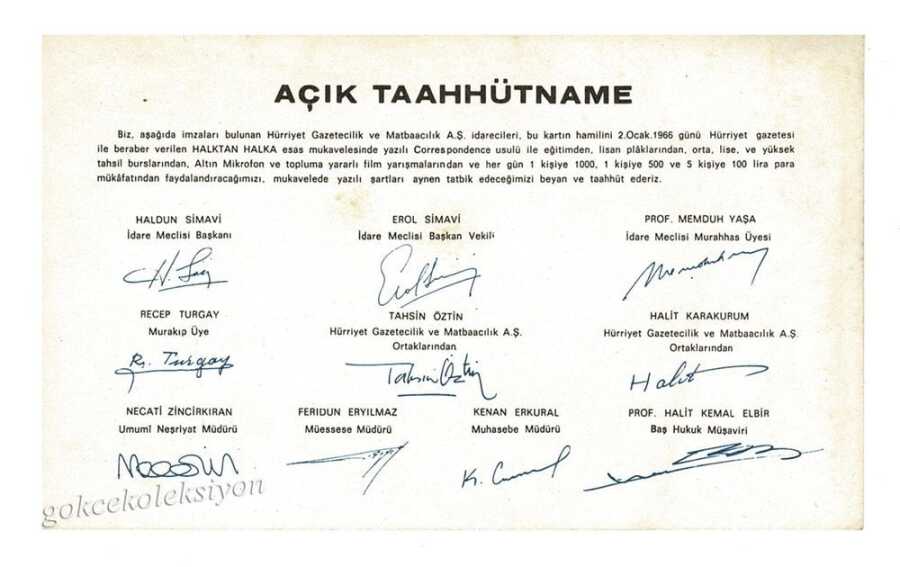 AÇIK TAAHHÜTNAME
Biz, aşağıda imzaları bulunan Hürriyet Gazetecilik ve Matbaacılık A.Ş. idarecileri, bu kartın hamilini 2.Ocak.1966 günü Hürriyet gazetesi
ile beraber verilen HALKTAN HALKA esas mukavelesinde yazılı Correspondence usulü ile eğitimden, lisan plâklarından, orta, lise, ve yüksek
tahsil burslarından, Altın Mikrofon ve topluma yararlı film yarışmalarından ve her gün 1 kişiye 1000, 1 kişiye 500 ve 5 kişiye 100 lira para
mükâfatından faydalandıracağımızı, mukavelede yazılı şartları aynen tatbik edeceğimizi beyan ve taahhüt ederiz.
HALDUN SİMAVİ
İdare Meclisi Başkanı
EROL SİMAVİ
İdare Meclisi Başkan Vekili
PROF. MEMDUH YAŞA
İdare Meclisi Murahhas Üyesi
RECEP TURGAY
Murakıp Üye
R. Turgay
TAHSİN ÖZTİN
Hürriyet Gazetecilik ve Matbaacılık A.Ş.
Ortaklarından
Tahsin Öztin
HALİT KARAKURUM
Hürriyet Gazetecilik ve Matbaacılık A.Ş.
Ortaklarından
Halit
NECATİ ZİNCİRKIRAN
Umumî Neşriyat Müdürü
FERİDUN ERYILMAZ
Müessese Müdürü
KENAN ERKURAL
Muhasebe Müdürü
PROF. HALİT KEMAL ELBİR
Baş Hukuk Müşaviri
gokcekoleksiyon